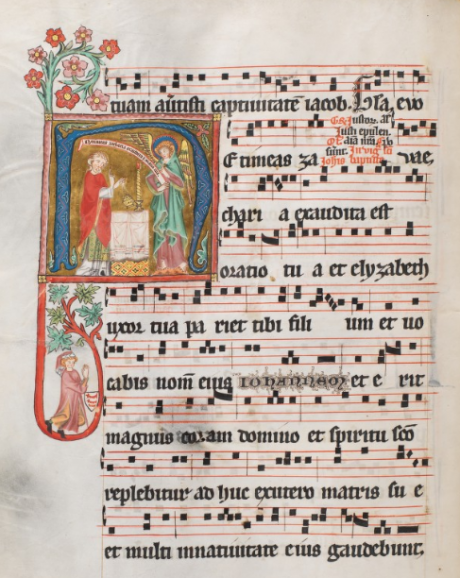 tuam auertisti captiuitatē iacob. Psa, euo
Gͣ Iustor. aͥ
Iusti epulen.
sunt. In uig. sci
Iohis baptiste
E timeas za vae,
chari a exaudita est
oratio tu a et elyzabeth
uxor tua pa riet tibi fili um et uo
cabis nom̄ eius IOHANNEM et e rit
magnus coram domino et spiritu sc̄o
replebitur ad huc exutero matris su e
et multi innatiuitate eius gaudebunt,